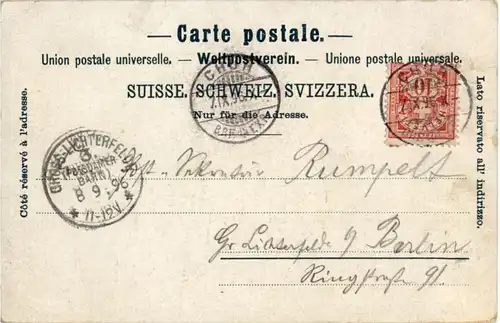 — Carte postale. —
Union postale universelle. — Weltpostverein. — Unione postale universale.
SUISSE. SCHWEIZ. SVIZZERA.
Nur für die Adresse.
Côté réservé à l'adresse.
Lato riservato all' indirizzo.
CHUR
BRF. EXP.
10
GROSS-LICHTERFELDE
3
BAHN)
8 9 96
* 11-12V. *
Post-Sekretär Rumpelt
Gr Lichterfelde b/ Berlin
Ringstraße 91.